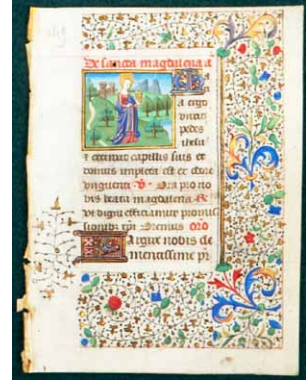 De sancta magdalena a
a ergo
pedes
ihesu
t extersit capillis suis et
domus impleta est et odore
unguenti V Ora pro no
bis beata magdalena R
Vt digni efficiamur promis
sionibus Oremus oro
Largire nobis cle
mentissime pr